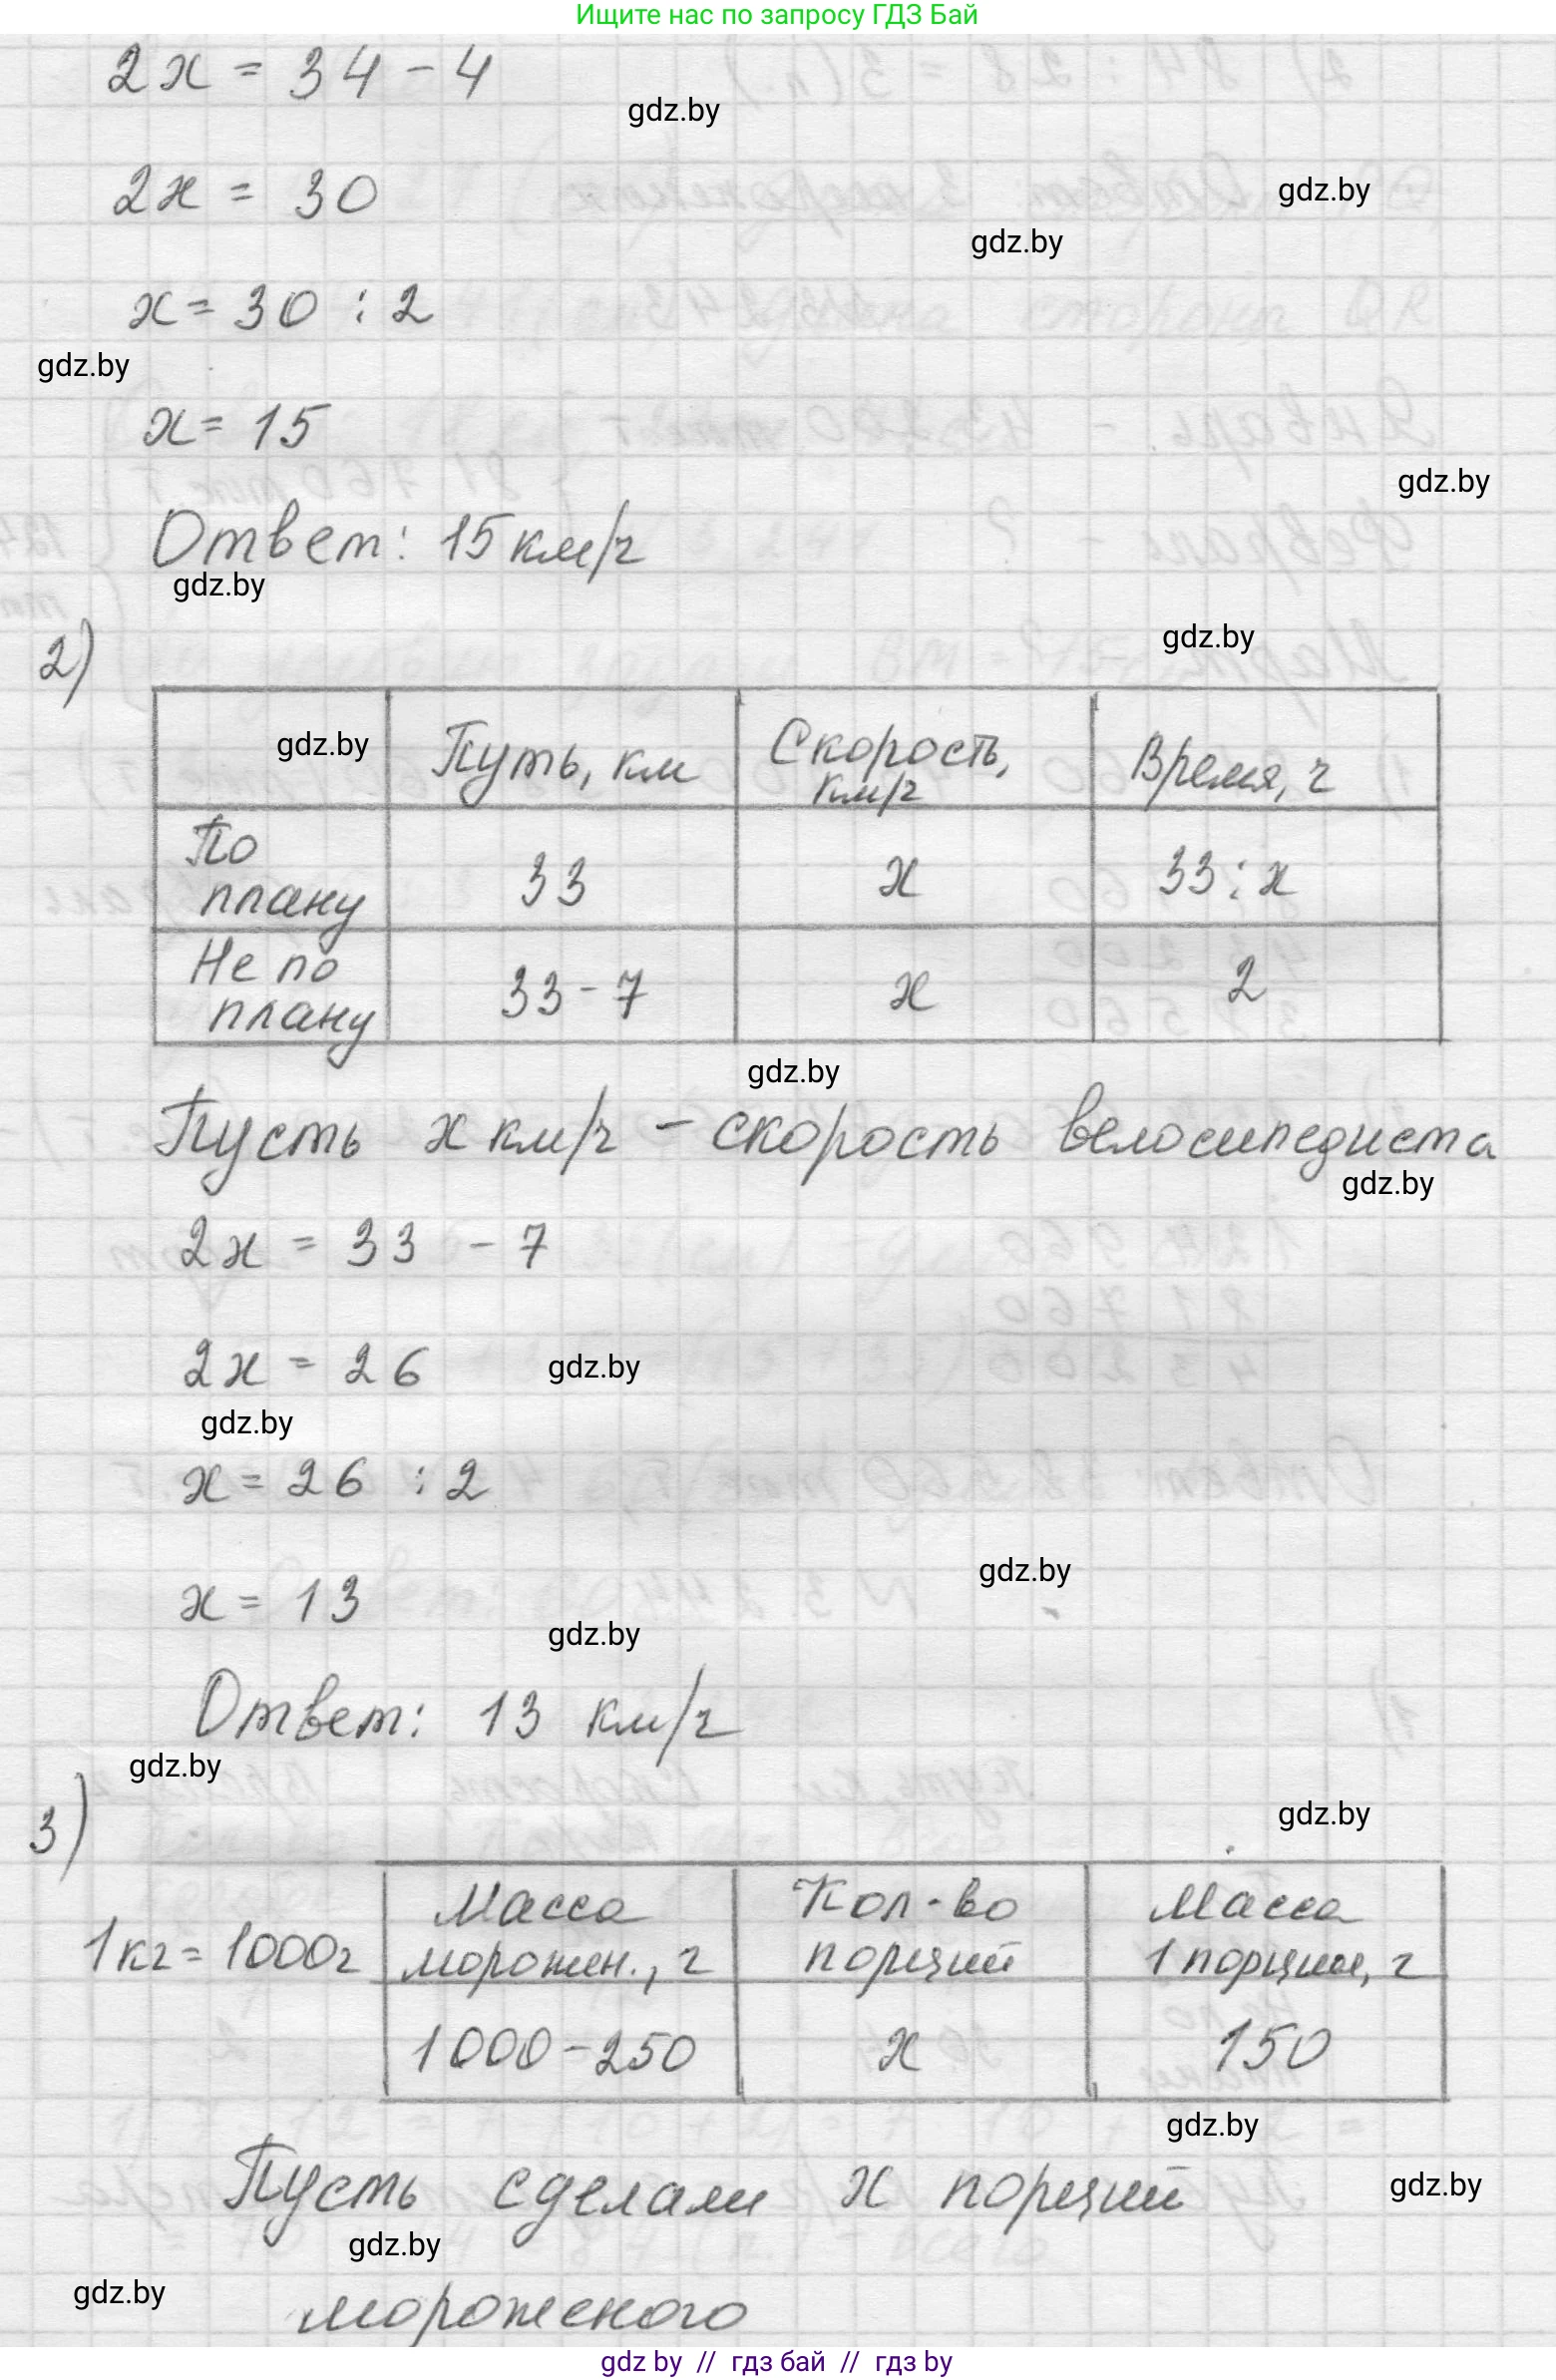 Ищите нас по запросу ГДЗ Бай
2x = 34 - 4
gdz.by
2x = 30
gdz.by
gdz.by
x = 30 : 2
gdz.by
x = 15
gdz.by
Ответ: 15 км/ч
gdz.by
gdz.by
2)
gdz.by
Путь, км
Скорость, км/ч
Время, ч
По плану
33
x
33 : x
Не по плану
33 - 7
x
2
gdz.by
Пусть x км/ч - скорость велосипедиста
gdz.by
2x = 33 - 7
2x = 26
gdz.by
gdz.by
x = 26 : 2
gdz.by
x = 13
gdz.by
Ответ: 13 км/ч
gdz.by
gdz.by
3)
1 кг = 1000 г
Масса морожен., г
Кол-во порций
Масса 1 порции, г
1000 - 250
x
150
gdz.by
Пусть сделали x порций
gdz.by
gdz.by
gdz.by
мороженого
gdz by // гдз бай // гдз by